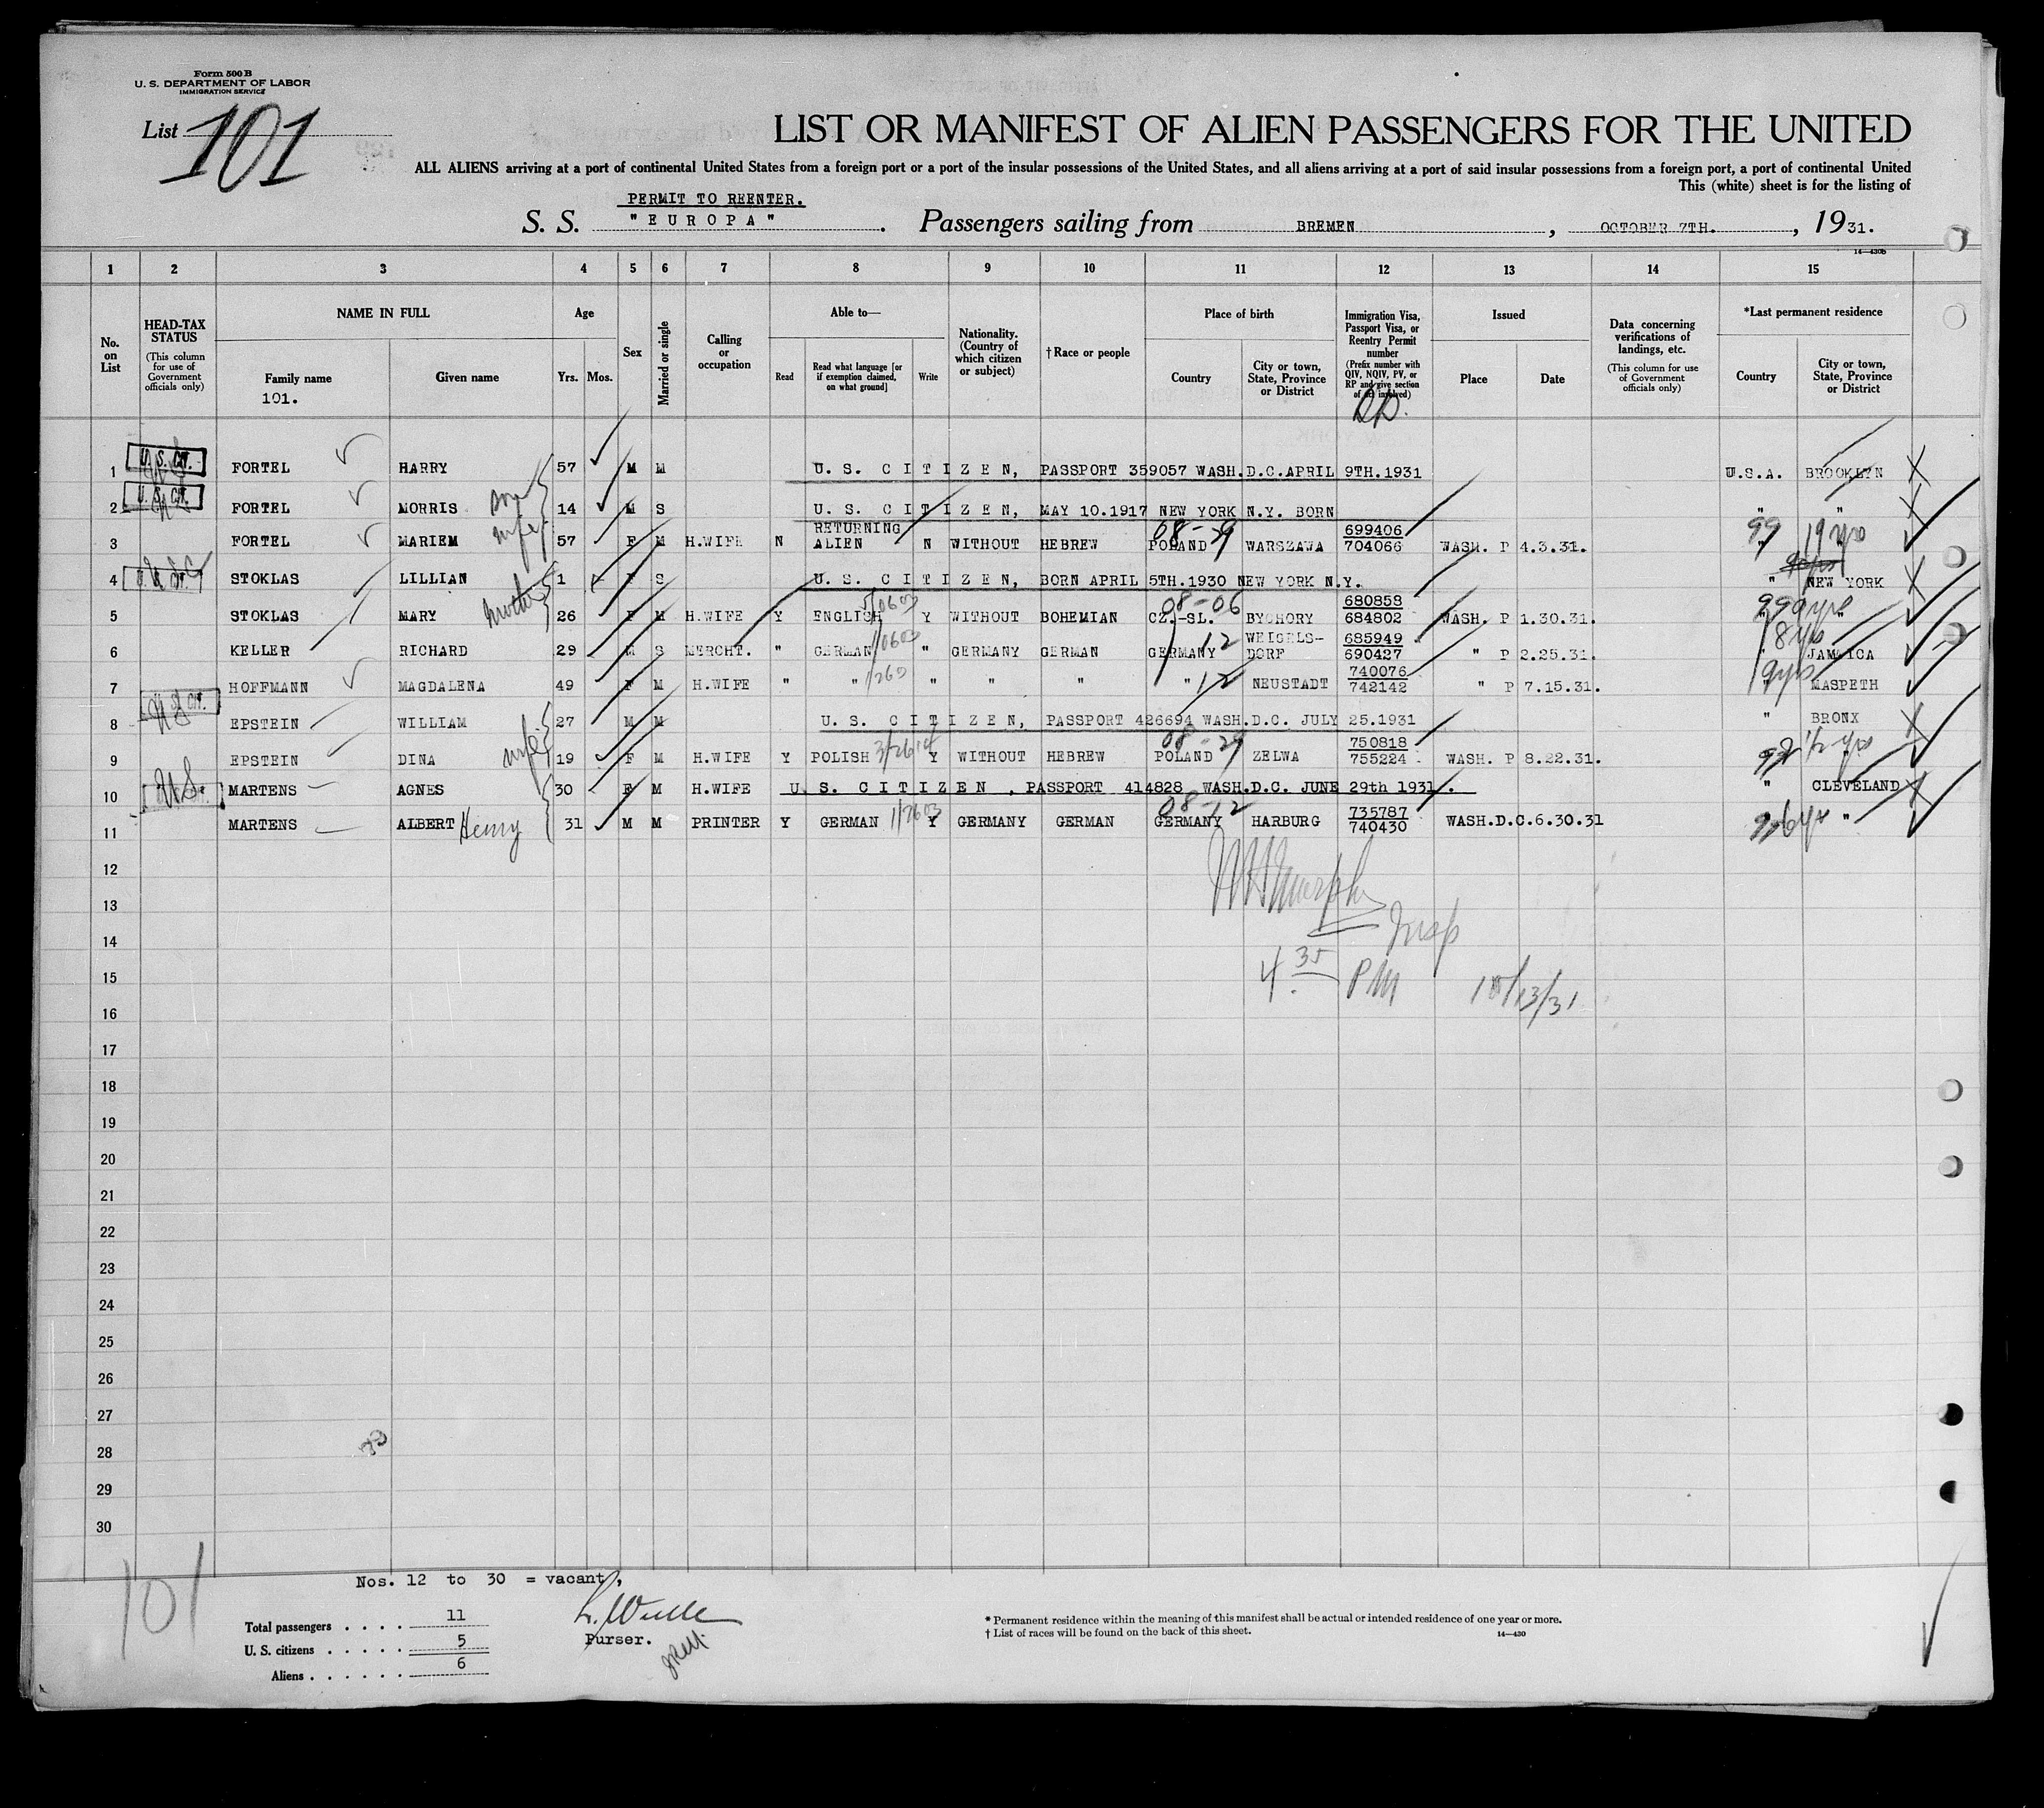 Form 500 B
U. S. DEPARTMENT OF LABOR
IMMIGRATION SERVICE
List 101
LIST OR MANIFEST OF ALIEN PASSENGERS FOR THE UNITED
ALL ALIENS arriving at a port of continental United States from a foreign port or a port of the insular possessions of the United States, and all aliens arriving at a port of said insular possessions from a foreign port, a port of continental United
This (white) sheet is for the listing of
PERMIT TO REENTER.
S. S. "EUROPA". Passengers sailing from BREMEN, OCTOBER 7TH., 1931.
14—430b
1 2 3 4 5 6 7 8 9 10 11 12 13 14 15
No. on List
HEAD-TAX STATUS (This column for use of Government officials only)
NAME IN FULL
Family name
101.
Given name
Age
Yrs. Mos.
Sex
Married or single
Calling or occupation
Able to—
Read
Read what language [or if exemption claimed, on what ground]
Write
Nationality. (Country of which citizen or subject)
† Race or people
Place of birth
Country
City or town, State, Province or District
Immigration Visa, Passport Visa, or Reentry Permit number (Prefix number with QIV, NQIV, PV, or RP and give section of act involved)
Issued
Place
Date
Data concerning verifications of landings, etc. (This column for use of Government officials only)
*Last permanent residence
Country
City or town, State, Province or District
1 U. S. CIT. FORTEL HARRY 57 M M U. S. CITIZEN, PASSPORT 359057 WASH.D.C.APRIL 9TH.1931 U.S.A. BROOKLYN
2 U. S. CIT. FORTEL MORRIS son 14 M S U. S. CITIZEN, MAY 10.1917 NEW YORK N.Y. BORN " "
3 FORTEL MARIEM wife 57 F M H.WIFE N RETURNING ALIEN N WITHOUT HEBREW POLAND 08-29 WARSZAWA 699406 704066 WASH. P 4.3.31. 99 19 yrs
4 U. S. CIT. STOKLAS LILLIAN 1 F S U. S. CITIZEN, BORN APRIL 5TH.1930 NEW YORK N.Y. " NEW YORK
5 STOKLAS MARY mother 26 F M H.WIFE Y ENGLISH Y WITHOUT BOHEMIAN 08-06 CZ.-SL. BYCHORY 680858 684802 WASH. P 1.30.31. "
6 KELLER RICHARD 29 M S MERCHT. " GERMAN " GERMANY GERMAN GERMANY 12 WEIGELS-DORF 685949 690427 " P 2.25.31. " 8 yrs JAMAICA
7 HOFFMANN MAGDALENA 49 F M H.WIFE " " " " " " 12 NEUSTADT 740076 742142 " P 7.15.31. " 9 yrs MASPETH
8 U. S. CIT. EPSTEIN WILLIAM 27 M M U. S. CITIZEN, PASSPORT 426694 WASH.D.C. JULY 25.1931 " BRONX
9 EPSTEIN DINA wife 19 F M H.WIFE Y POLISH Y WITHOUT HEBREW 08-29 POLAND ZELWA 750818 755224 WASH. P 8.22.31. "
10 U.S. MARTENS AGNES 30 F M H.WIFE U. S. CITIZEN, PASSPORT 414828 WASH.D.C. JUNE 29th 1931. " CLEVELAND
11 MARTENS ALBERT Henry 31 M M PRINTER Y GERMAN Y GERMANY GERMAN 08-12 GERMANY HARBURG 735787 740430 WASH.D.C.6.30.31 "
12
13
14 Insp
15 4 35 PM 10/13/31
16
17
18
19
20
21
22
23
24
25
26
27
28
29
30
101
Nos. 12 to 30 = vacant,
Total passengers . . . . 11
U. S. citizens . . . . . 5
Aliens . . . . . . 6
Purser.
* Permanent residence within the meaning of this manifest shall be actual or intended residence of one year or more.
† List of races will be found on the back of this sheet.
14—430